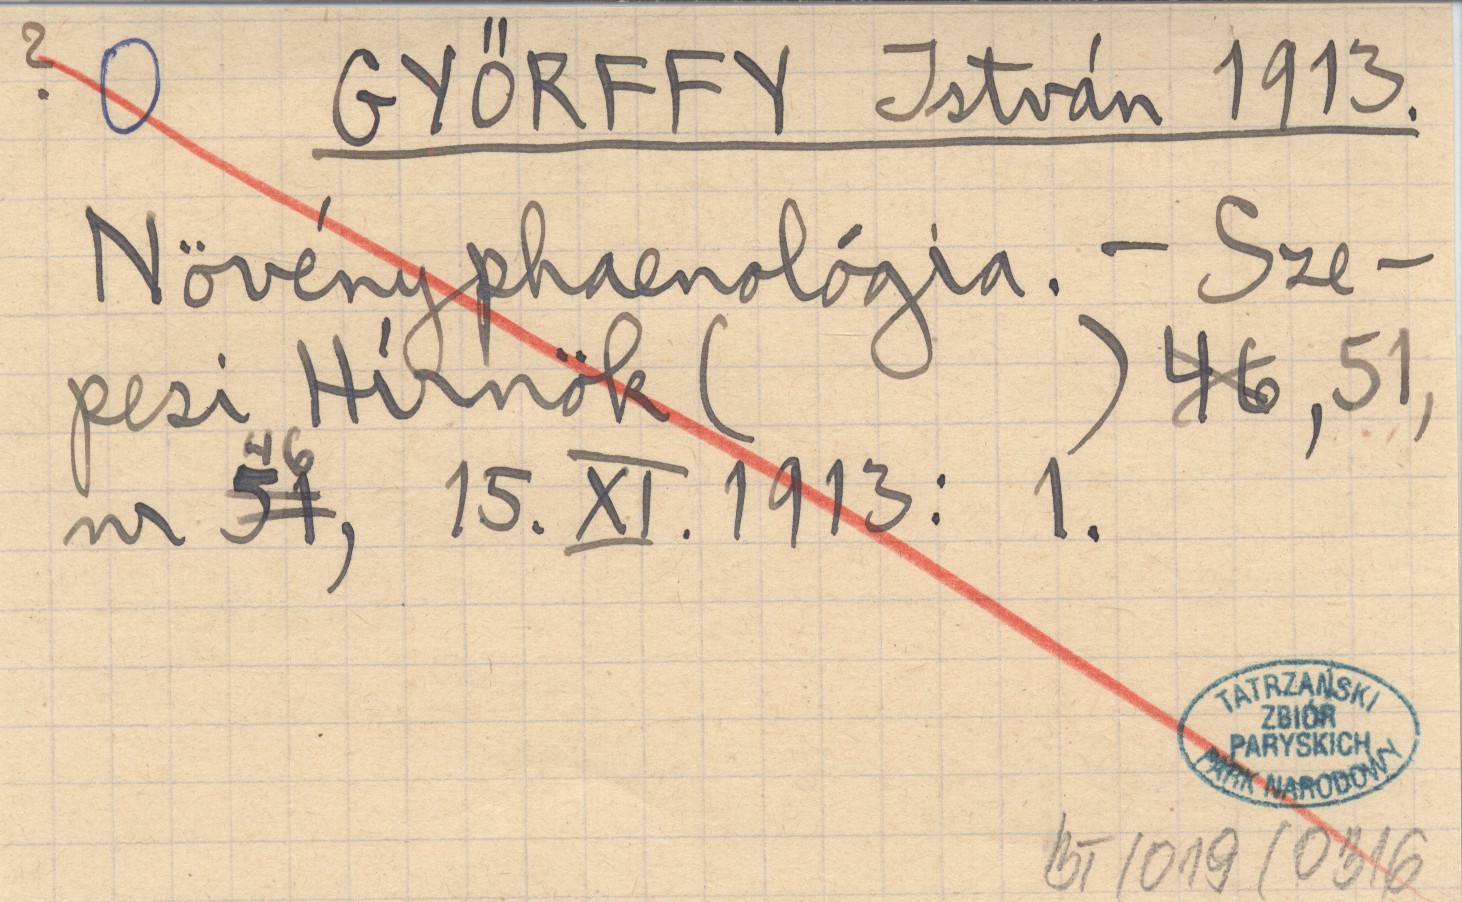 ? O GYŐRFFY István 1913.
Növényphaenológia. – Sze-
pesi Hírnök ( ) 46, 51,
46
nr 51, 15. XI. 1913: 1.
TATRZAŃSKI
ZBIÓR
PARYSKICH
PARK NARODOWY
BT/019/0316